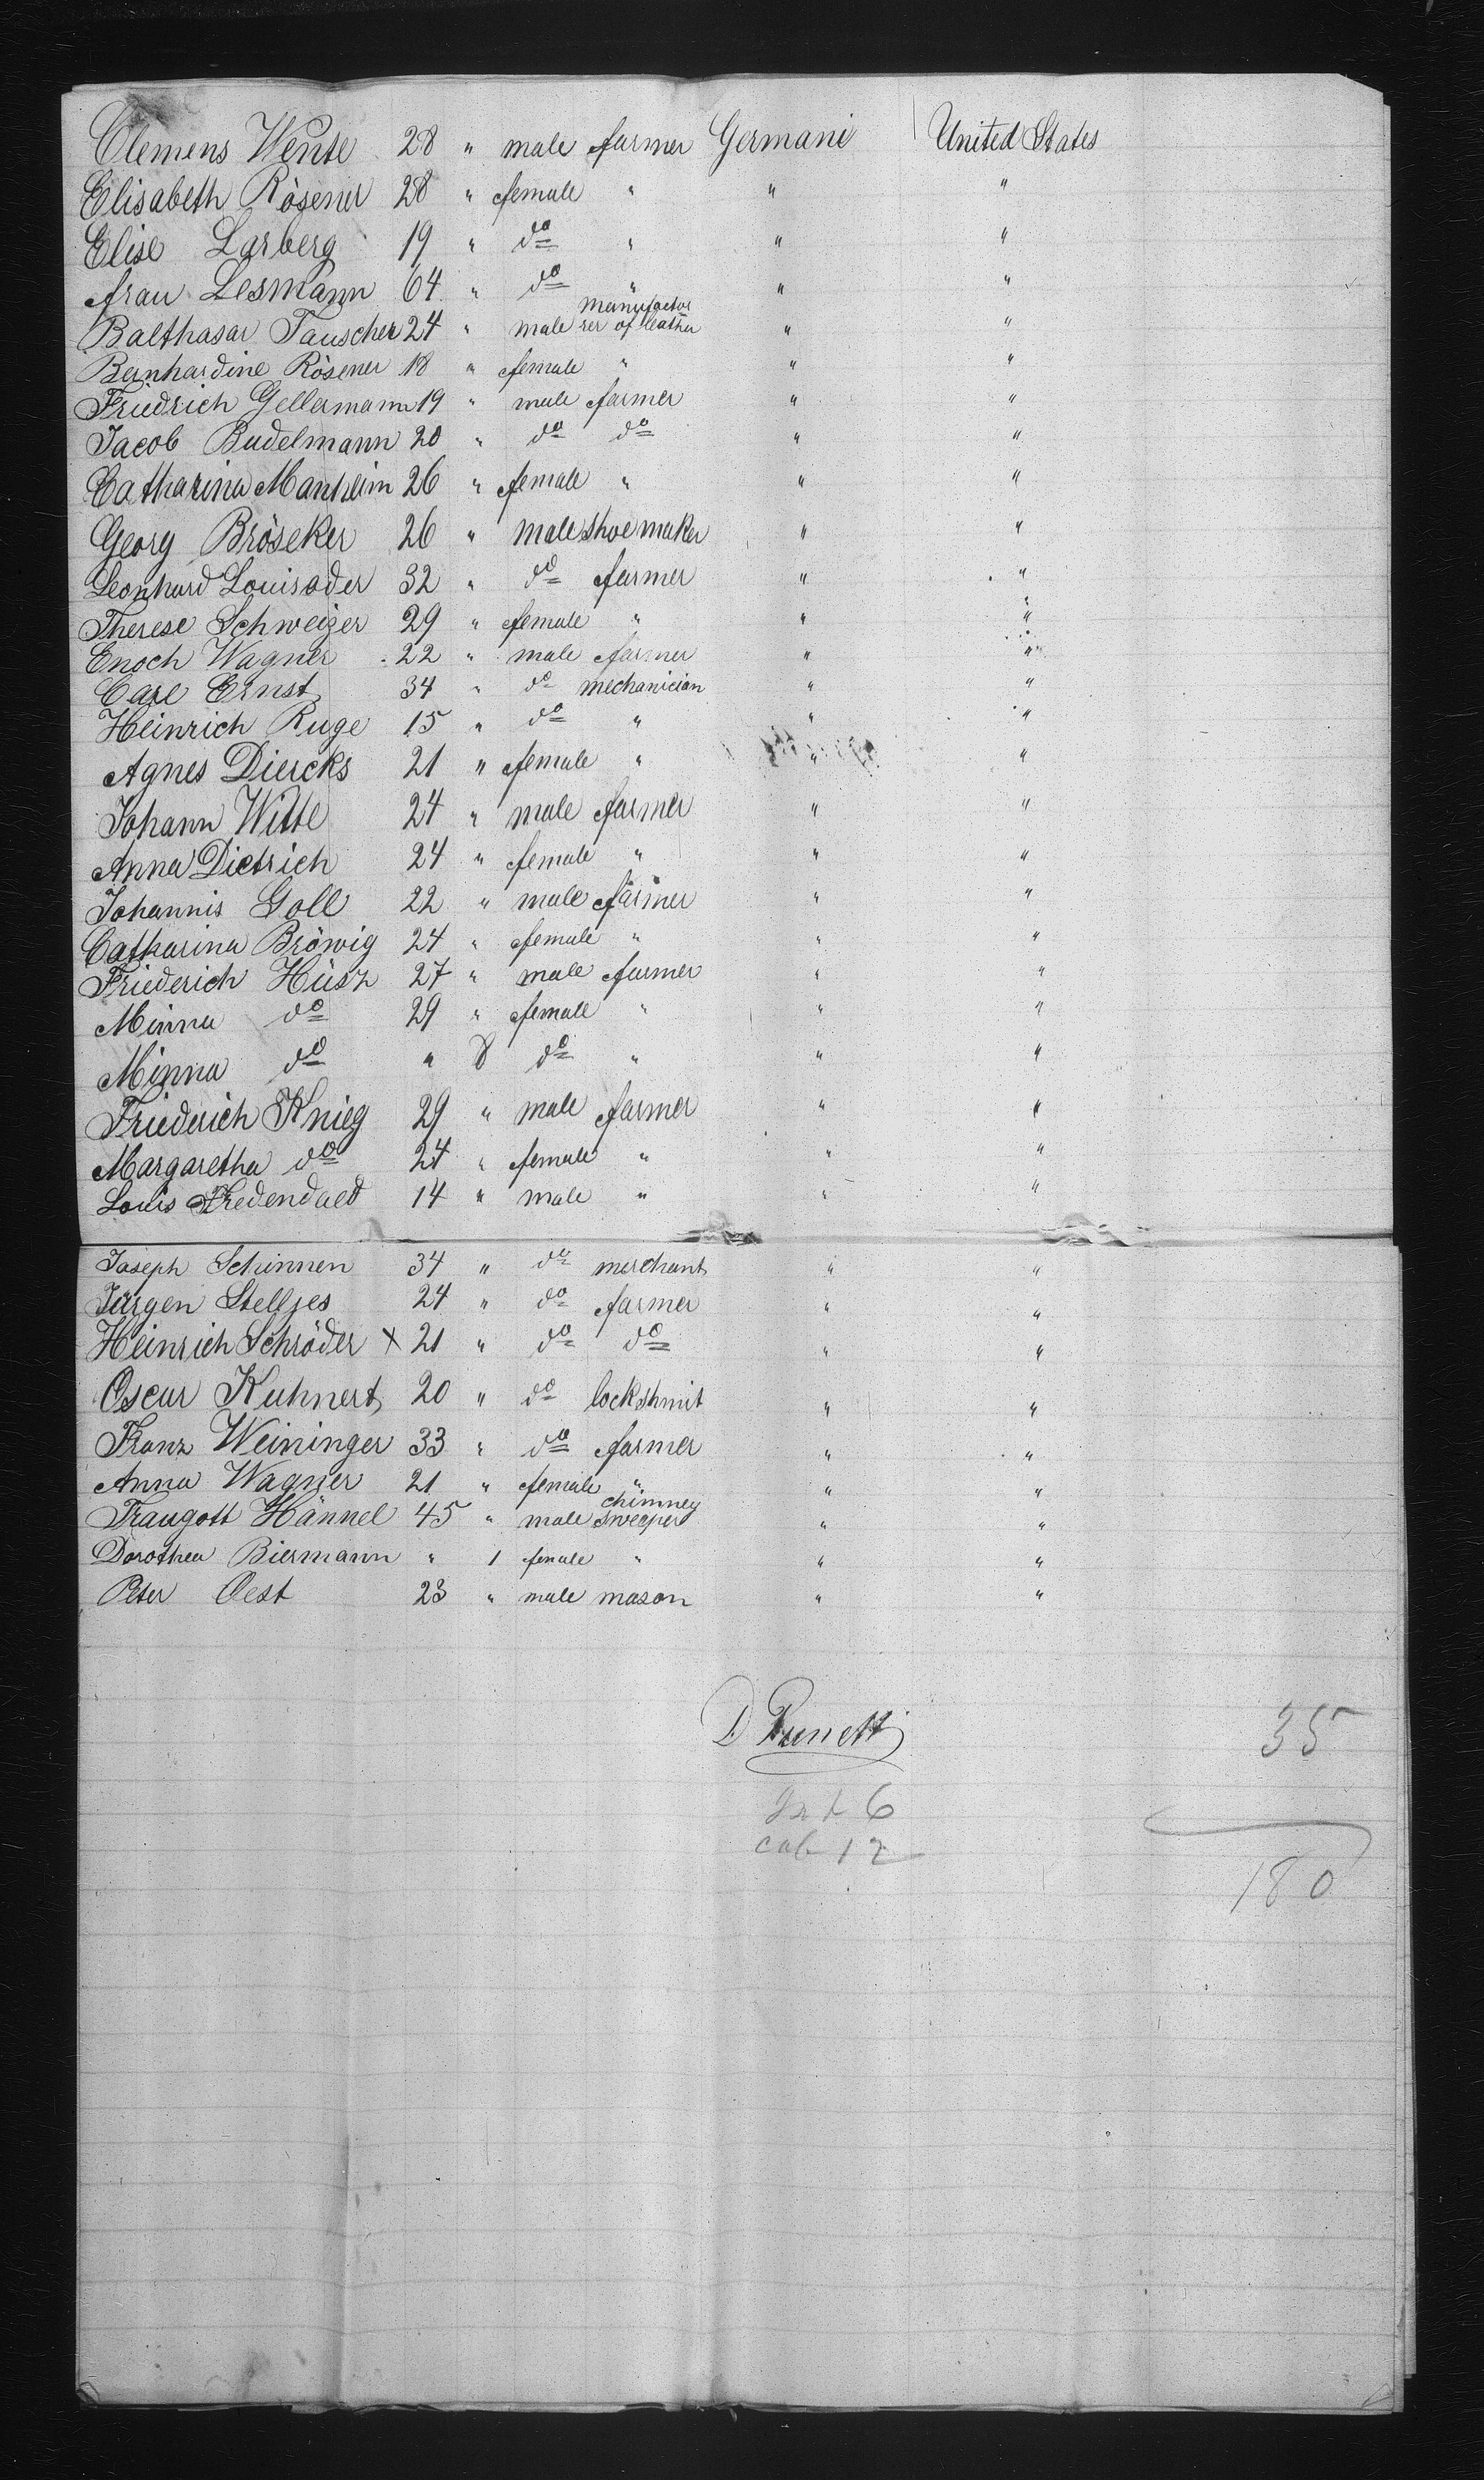 Clemens Wente 28 " male farmer Germani United States
Elisabeth Rösener 28 " female " " "
Elise Larberg 19 " do " " "
frau Lesmann 64 " do " " "
Balthasar Tauscher 24 " male manufactor rer of leather " "
Bernhardine Rösener 18 " female " " "
Friedrich Gellermann 19 " male farmer " "
Jacob Budelmann 20 " do do " "
Catharina Manheim 26 " female " " "
Georg Bröseker 26 " male shoemaker " "
Leonhard Louisoder 32 " do farmer " "
Therese Schweizer 29 " female " " "
Enoch Wagner 22 " male farmer " "
Carl Ernst 34 " do mechanician " "
Heinrich Ruge 15 " do " " "
Agnes Diercks 21 " female " " "
Johann Witte 24 " male farmer " "
Anna Dietrich 24 " female " " "
Johannis Goll 22 " male farmer " "
Catharina Bröwig 24 " female " " "
Friederich Hüsz 27 " male farmer " "
Minna do 29 " female " " "
Minna do " 8 do " " "
Friederich Knieg 29 " male farmer " "
Margaretha do 24 " female " " "
Louis Fredendald 14 " male " " "
Joseph Schinnen 34 " do merchant " "
Jürgen Stelljes 24 " do farmer " "
Heinrich Schröder x 21 " do do " "
Oscar Kuhnert 20 " do lockshmit " "
Franz Weininger 33 " do farmer " "
Anna Wagner 21 " female " " "
Traugott Hännel 45 " male chimney sweeper " "
Dorothea Biermann " 1 female " " "
Peter Oest 23 " male mason " "
D
35
6
cab 12
180